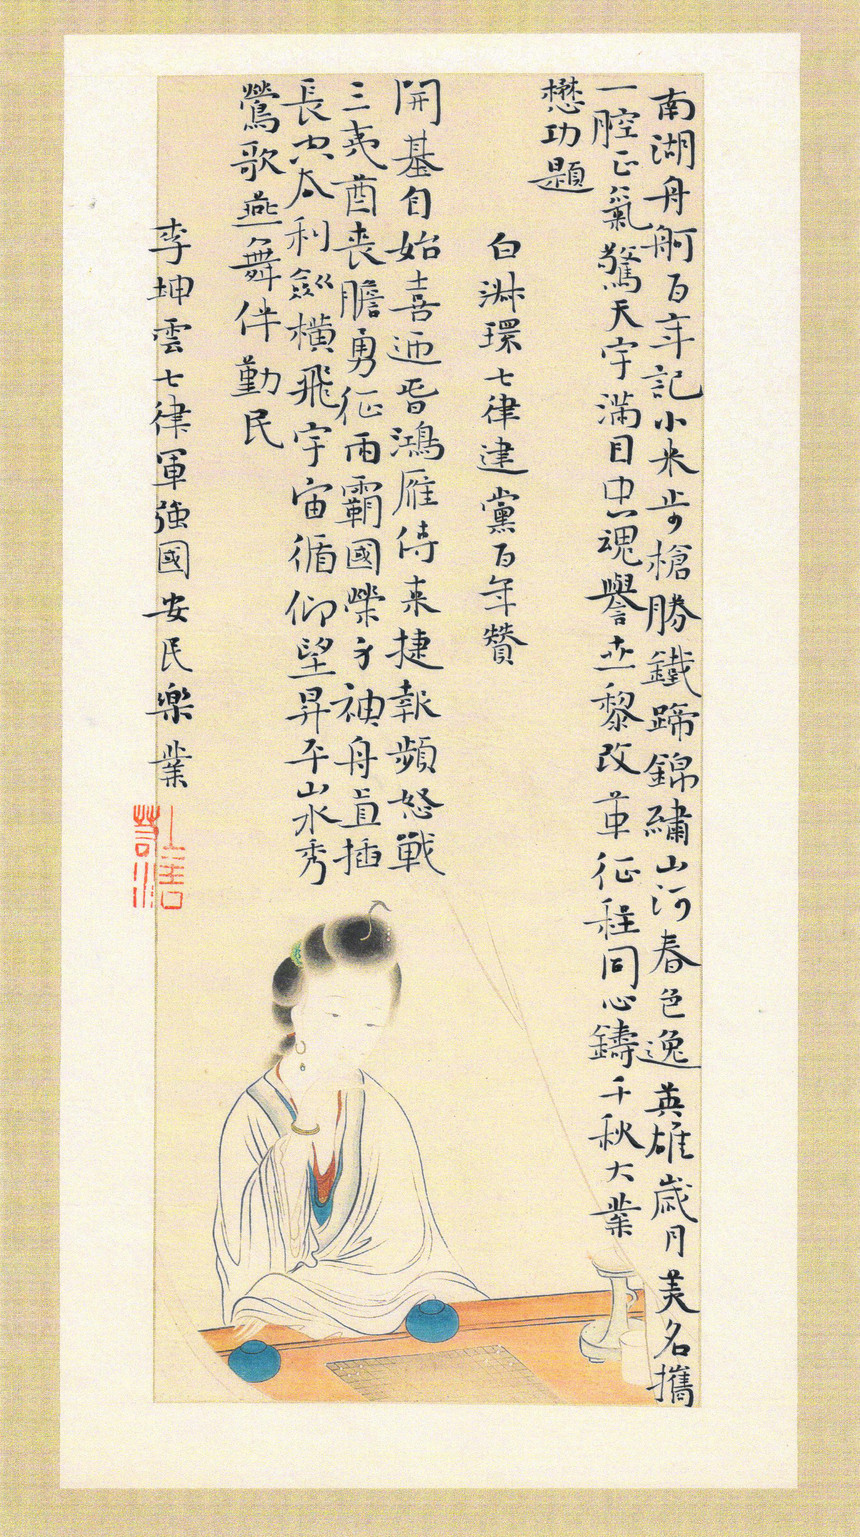 南湖舟舸百年記小米步槍勝鐵蹄錦繡山河春色逸英雄歲月美名攜
一腔正氣驚天宇滿目忠魂譽世黎改革征程同心鑄千秋大業
懋功題
白淋環七律建黨百年贊
開基自始喜迎旾鴻雁傳来捷報頻怒戰
三夷酋喪膽勇征兩霸國榮身神舟直插
長空厺利劍橫飛宇宙循仰望昇平山水秀
鶯歌燕舞伴勤民
李坤雲七律軍強國安民樂業